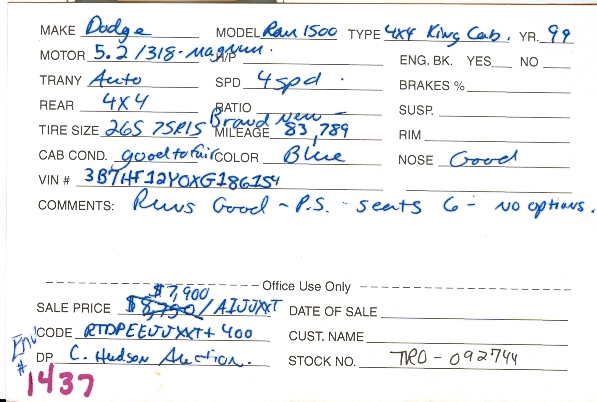 MAKE Dodge MODEL Ram 1500 TYPE 4x4 King Cab. YR. 99
MOTOR 5.2/318-magnum. H/P ENG. BK. YES NO
TRANY Auto SPD 4 spd. BRAKES %
REAR 4x4 RATIO SUSP.
Brand New -
TIRE SIZE 265 75R15 MILEAGE 83,789 RIM
CAB COND. good to fair COLOR Blue NOSE Good
VIN # 3B7HF12Y0XG186154
COMMENTS: Runs Good - P.S. - seats 6 - NO options.
Office Use Only
$7,900
SALE PRICE $8,750 / AIJJXXT DATE OF SALE
CODE RTDPEEJJXXT + 400 CUST. NAME
DP C. Hudson Auction. STOCK NO. TRO - 092744
Env #
1437